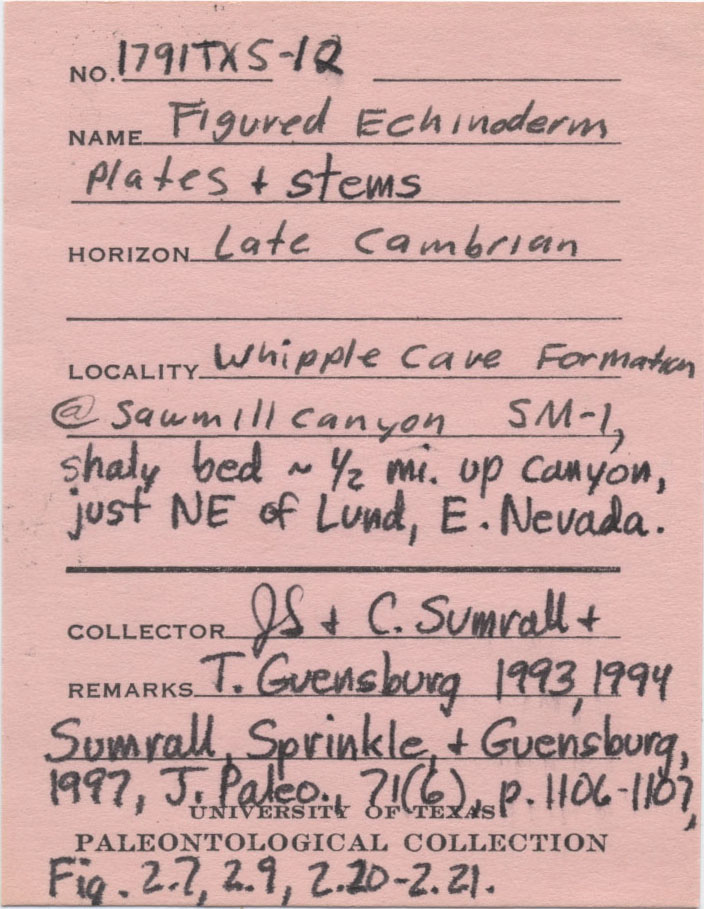 NO. 1791TX5-12
NAME Figured Echinoderm
Plates + stems
HORIZON Late Cambrian
LOCALITY Whipple Cave Formation
@ Sawmill Canyon SM-1,
shaly bed ~ 1/2 mi. up canyon,
just NE of Lund, E. Nevada.
COLLECTOR JS + C. Sumrall +
REMARKS T. Guensburg 1993, 1994
Sumrall, Sprinkle, + Guensburg,
1997, J. Paleo., 71(6), p. 1106-1107,
UNIVERSITY OF TEXAS
PALEONTOLOGICAL COLLECTION
Fig. 2.7, 2.9, 2.20-2.21.